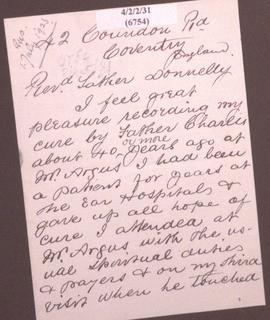 4/2/2/31
(6754)
Ans.
42 Coundon Rd
Coventry
England.
Revd. Father Donnelly
I feel great
pleasure recording my
cure by Father Charles
about 40 or more years ago at
Mt. Argus I had been
a patient for years at
the Ear Hospital &
gave up all hope of
cure I attended at
Mt. Argus with the us-
ual spiritual duties
& prayers & on my third
visit when he touched